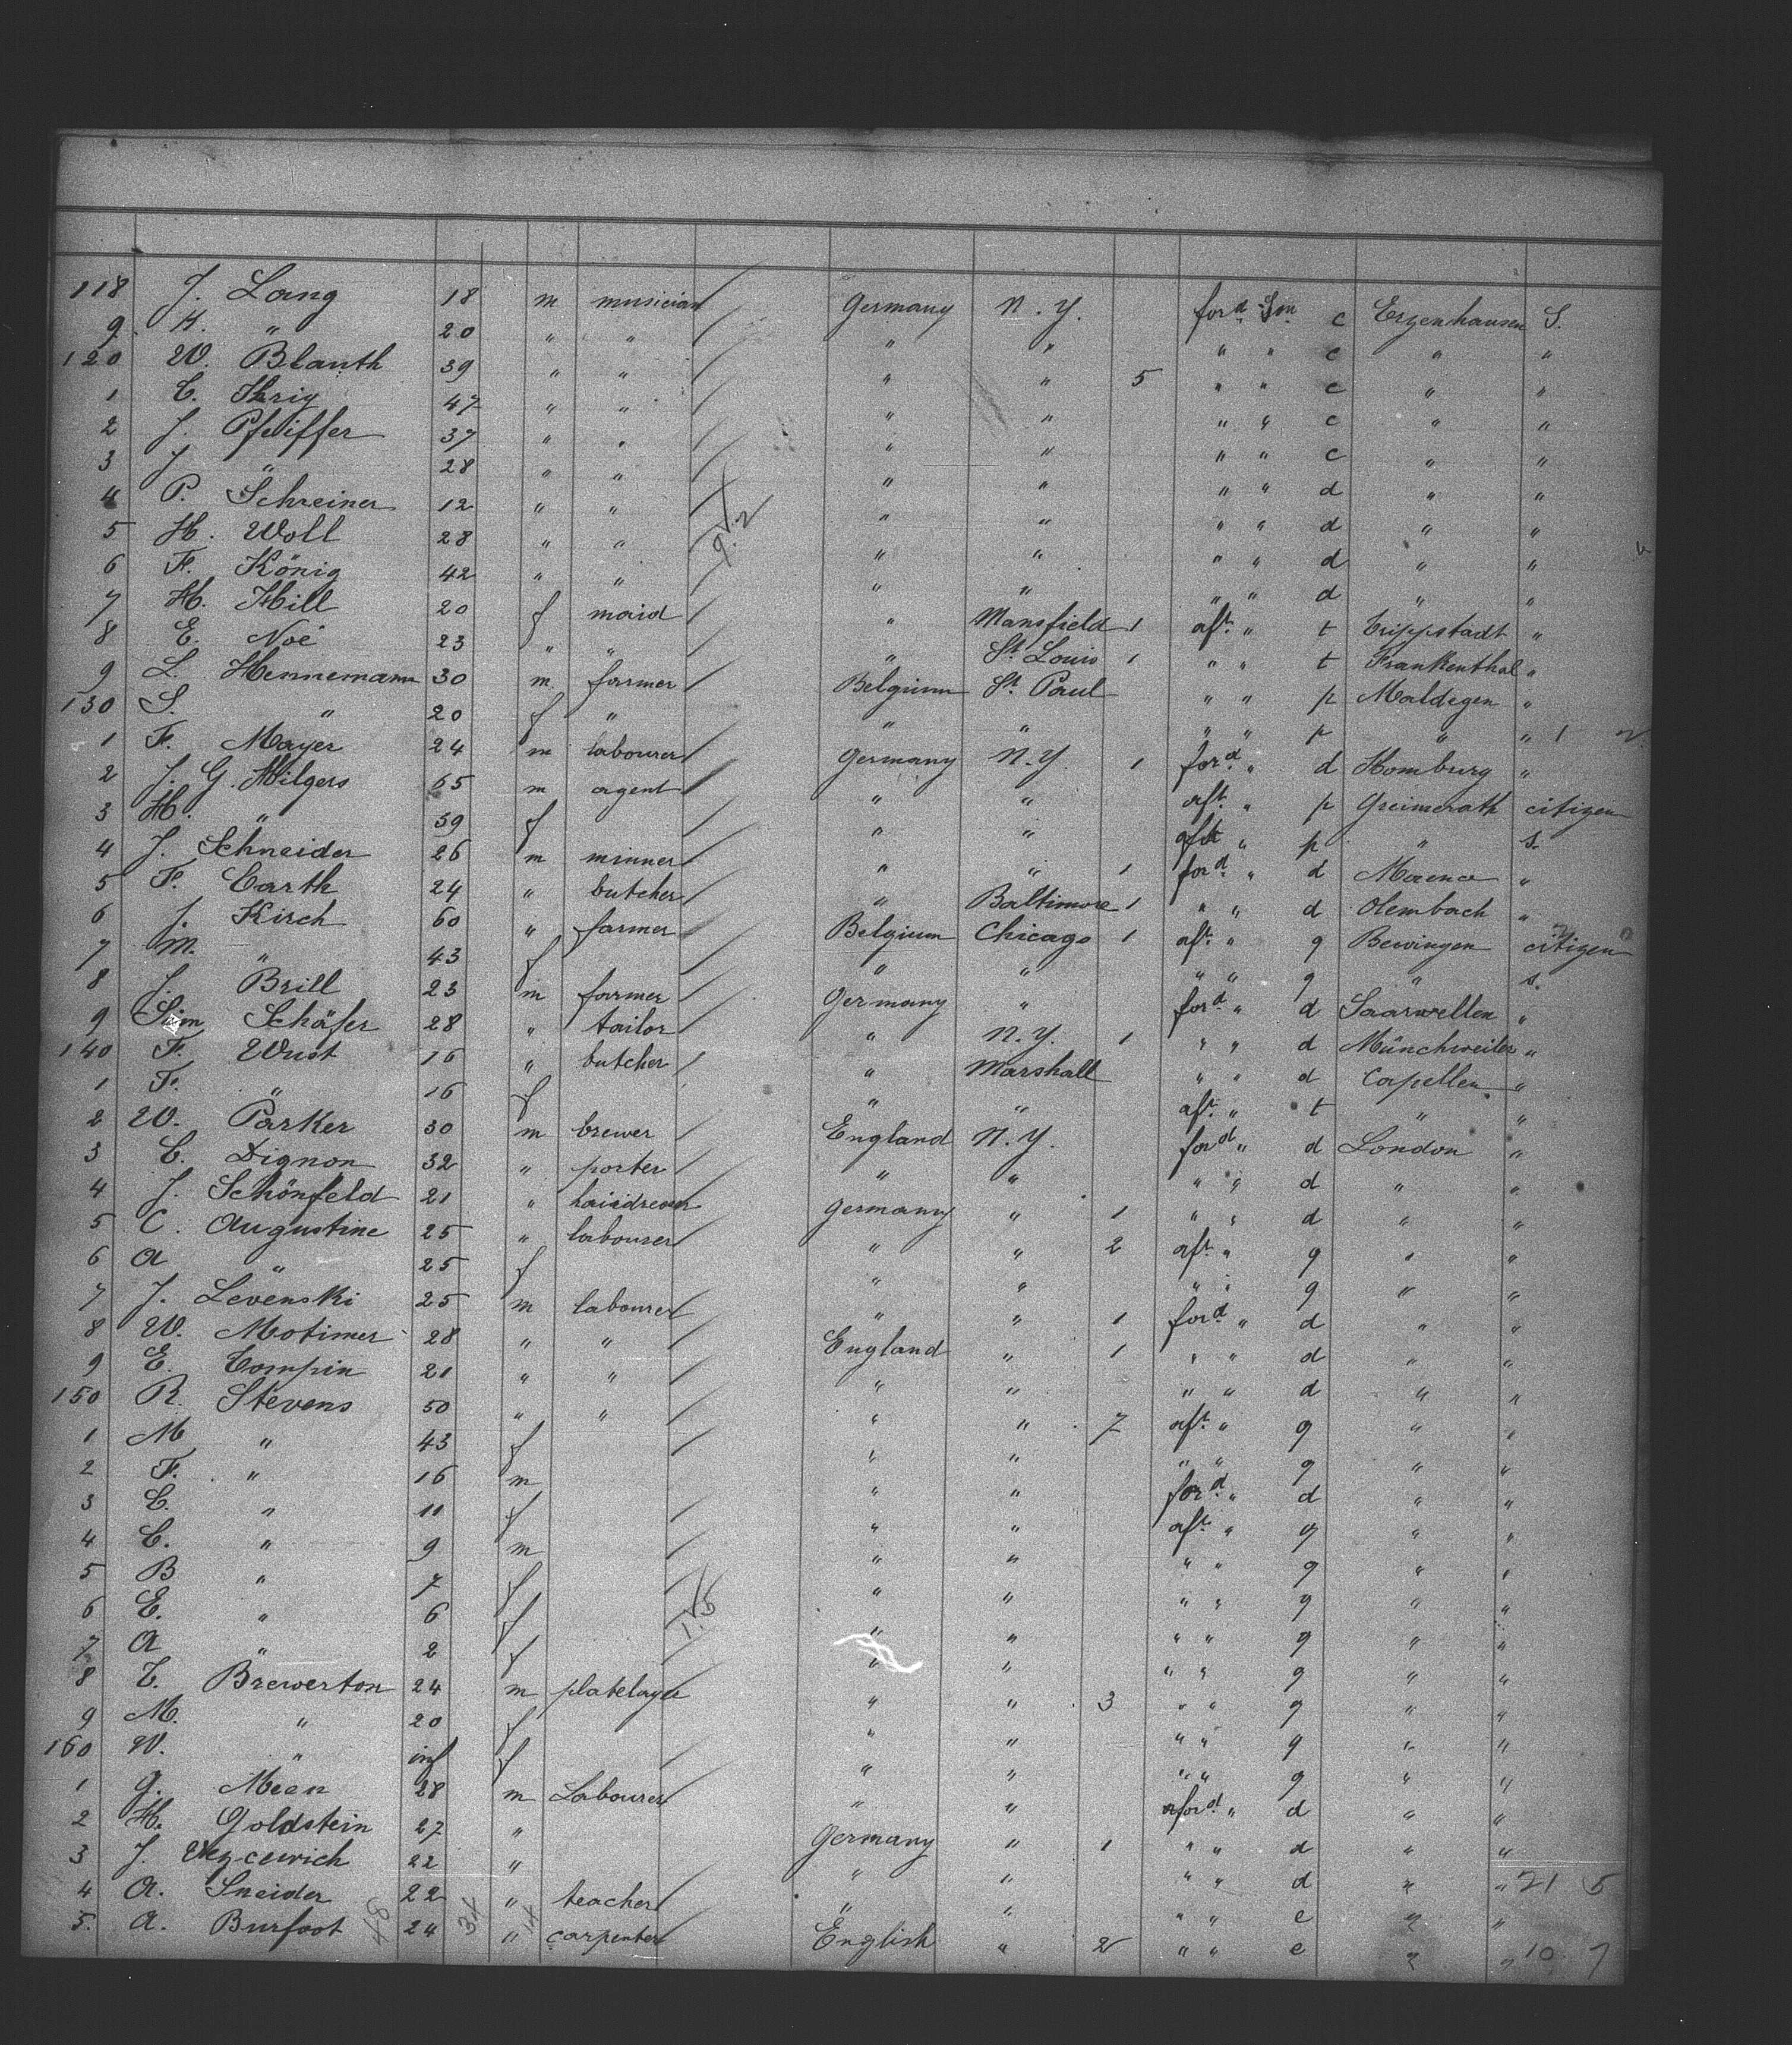 118 J. Lang 18 m musician Germany N.Y. ford Sm c Erzenhausen S.
9 H. " 20 " " " " " " c " "
120 W. Blauth 39 " " " " 5 " " c " "
1 C. Ihrig 47 " " " " " " c " "
2 J. Pfeiffer 37 " " " " " " c " "
3 J. " 28 " " " " " " d " "
4 P. Schreiner 12 " " " " " " d " "
5 H. Woll 28 " " " " " " d " "
6 F. König 42 " " " " " " d " "
7 H. Hill 20 f maid " Mansfield 1 aft. " t Trippstadt "
8 E. Noé 23 " " " St. Louis 1 " " t Frankenthal "
9 L. Hennemann 30 m farmer Belgium St. Paul " " p Maldegen "
130 S. " 20 f " " " " " p " " 1 2
1 F. Mayer 24 m labourer Germany N.Y. 1 ford " d Homburg "
2 J. G. Hilgers 65 m agent " " aft. " p Greimerath citizen
3 H. " 59 f " " aft " p " S.
4 J. Schneider 26 m minner " " 1 ford " d "
5 F. Barth 24 " butcher " Baltimore 1 " " d Olembach "
6 J. Kirsch 60 " farmer Belgium Chicago 1 aft. " g Bewingen citizen
7 M. " 43 f " " " " g " S.
8 J. Brill 23 m farmer Germany " ford " d Saarwellen "
9 Sim Schäfer 28 " tailor " N.Y. 1 " " d Münchweiler "
140 F. Wust 16 " butcher " Marshall " " d Capellen "
1 F. " 16 f " " aft. " t " "
2 W. Parker 30 m brewer England N.Y. ford " d London "
3 C. Dignon 32 " porter " " " " d " "
4 J. Schönfeld 21 " Germany " 1 " " d " "
5 C. Augustine 25 " labourer " " 2 aft. " g " "
6 A " 25 f " " " " g " "
7 J. Levenski 25 m labourer " " 1 ford " d " "
8 W. Motimer 28 " " England " 1 " " d " "
9 E. Tompin 21 " " " " " " d " "
150 R. Stevens 50 " " " " 7 aft. " g " "
1 M " 43 f " " " " g " "
2 F. " 16 m " " ford " d " "
3 C. " 11 f " " aft. " g " "
4 C. " 9 m " " " " g " "
5 B " 7 f " " " " g " "
6 E. " 6 f " " " " g " "
7 A " 2 f " " " " g " "
8 T. Brewerton 24 m platelayer " " 3 " " g " "
9 M. " 20 f " " " " g " "
160 W. " inf f " " " " g " "
1 G. Mean 28 m Labourer " " ford " d " "
2 H. Goldstein 27 " Germany " 1 " " d " "
3 J. 22 " " " " " d " " 21 5
4 A. Sneider 22 " teacher " " " " e " "
5. A. Burfoot 24 " carpenter English " 2 " " e " " 10 7